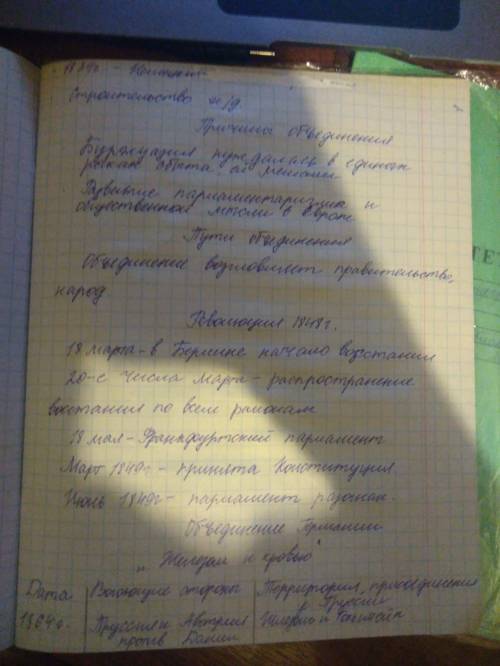 Строительство ж/д.
Причины объединения
Буржуазия нуждалась в едином
рынке сбыта
Развитие парламентаризма и
общественной мысли в Европе
Пути объединения
Объединение возглавляет правительство,
народ
Революция 1848г.
18 марта - в Берлине начало восстания
20-е числа Марта - распространение
восстания по всем районам
18 мая - Франкфуртский парламент
Март 1849г - принята Конституция
Июнь 1849г - парламент разогнан.
Объединение Германии
"Железом и кровью"
Дата Воюющие стороны Территория, присоединения
к Пруссии
1864г. Пруссия и Австрия Шлезвиг и Гольштейн
против Дании